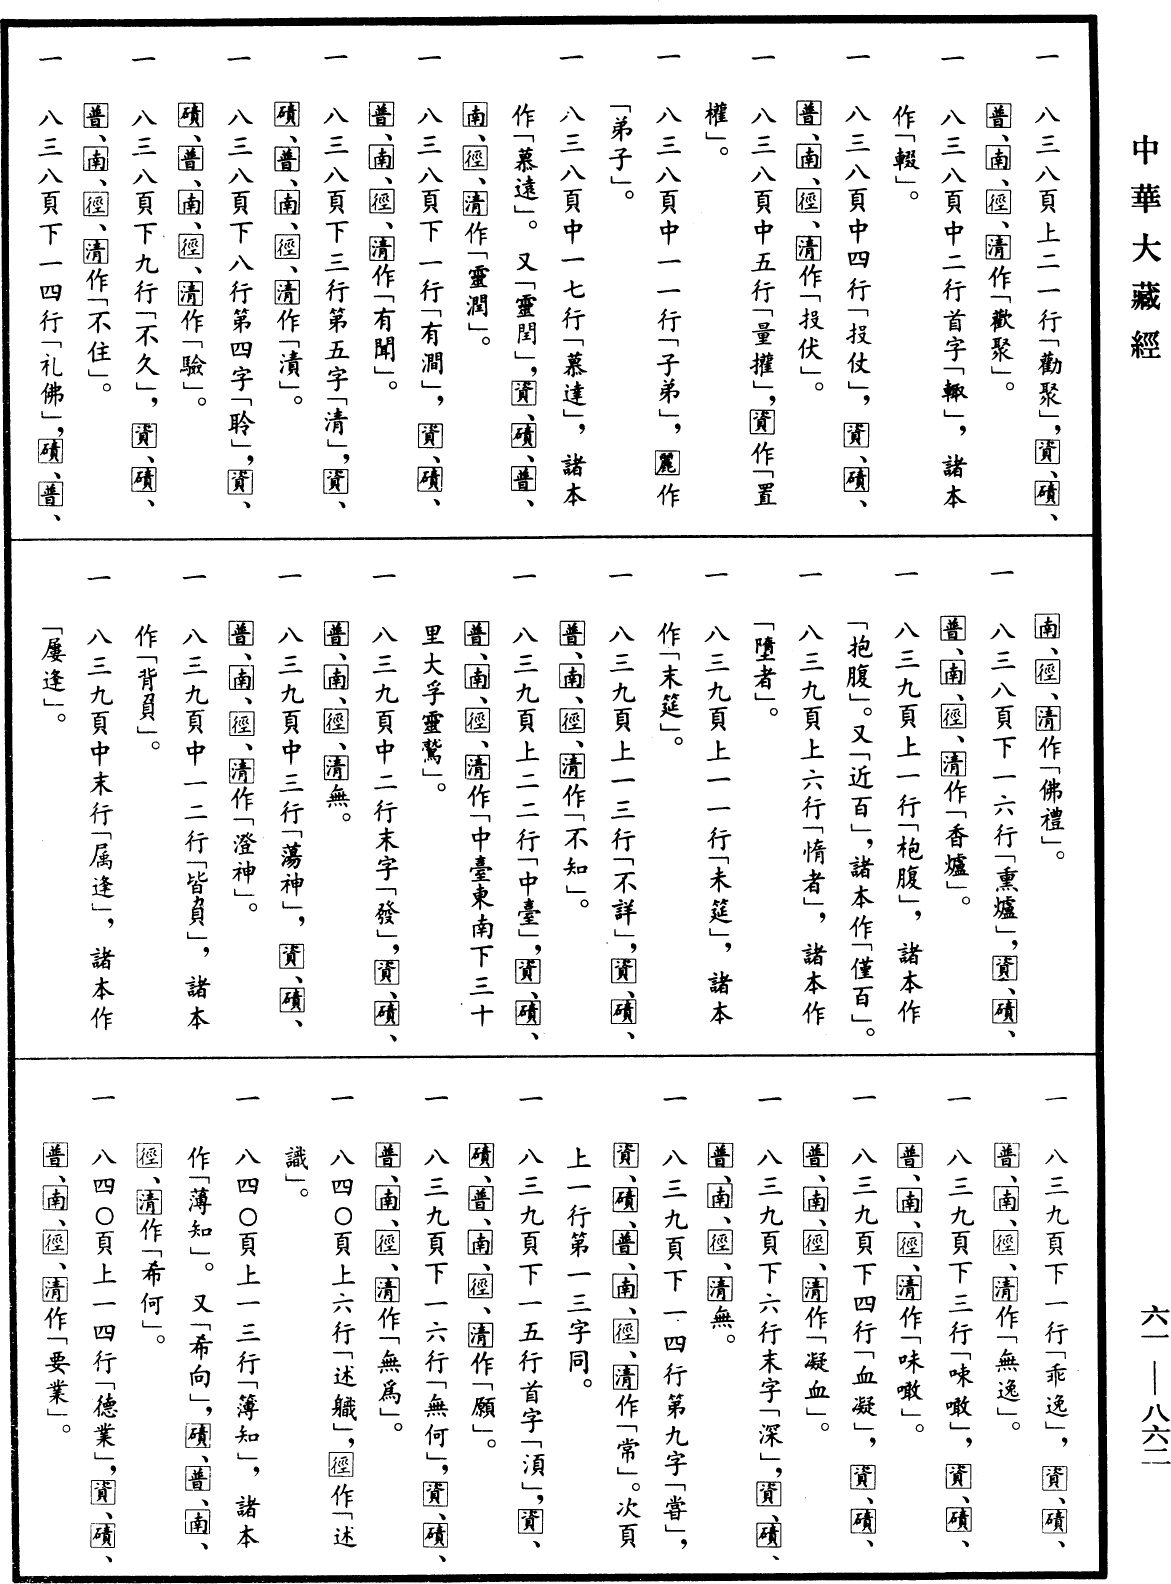 中華大藏經
一　八三八頁上二一行「勸聚」，資、磧、
普、南、徑、清作「歡聚」。
一　八三八頁中二行首字「輙」，諸本
作「輟」。
一　八三八頁中四行「投仗」，資、磧、
普、南、徑、清作「投伏」。
一　八三八頁中五行「量㩲」，資作「置
權」。
一　八三八頁中一一行「子弟」，麗作
「弟子」。
一　八三八頁中一七行「慕達」，諸本
作「慕遠」。又「靈閏」，資、磧、普、
南、徑、清作「靈潤」。
一　八三八頁下一行「有澗」，資、磧、
普、南、徑、清作「有聞」。
一　八三八頁下三行第五字「清」，資、
磧、普、南、徑、清作「漬」。
一　八三八頁下八行第四字「聆」，資、
磧、普、南、徑、清作「驗」。
一　八三八頁下九行「不久」，資、磧、
普、南、徑、清作「不住」。
一　八三八頁下一四行「礼佛」，磧、普、
南、徑、清作「佛禮」。
一　八三八頁下一六行「熏爐」，資、磧、
普、南、徑、清作「香爐」。
一　八三九頁上一行「枹腹」，諸本作
「抱腹」。又「近百」，諸本作「僅百」。
一　八三九頁上六行「惰者」，諸本作
「墮者」。
一　八三九頁上一一行「未筵」，諸本
作「末筵」。
一　八三九頁上一三行「不詳」，資、磧、
普、南、徑、清作「不知」。
一　八三九頁上二二行「中臺」，資、磧、
普、南、徑、清作「中臺東南下三十
里大孚靈鷲」。
一　八三九頁中二行末字「發」，資、磧、
普、南、徑、清無。
一　八三九頁中三行「蕩神」，資、磧、
普、南、徑、清作「澄神」。
一　八三九頁中一二行「皆負」，諸本
作「背負」。
一　八三九頁中末行「属逢」，諸本作
「屢逢」。
一　八三九頁下一行「乖逸」，資、磧、
普、南、徑、清作「無逸」。
一　八三九頁下三行「味噉」，資、磧、
普、南、徑、清作「味噉」。
一　八三九頁下四行「血凝」，資、磧、
普、南、徑、清作「凝血」。
一　八三九頁下六行末字「深」，資、磧、
普、南、徑、清無。
一　八三九頁下一四行第九字「嘗」，
資、磧、普、南、徑、清作「常」。次頁
上一行第一三字同。
一　八三九頁下一五行首字「湏」，資、
磧、普、南、徑、清作「願」。
一　八三九頁下一六行「無何」，資、磧、
普、南、徑、清作「無爲」。
一　八四〇頁上六行「述軄」，徑作「述
識」。
一　八四〇頁上一三行「簿知」，諸本
作「薄知」。又「希向」，磧、普、南、
徑、清作「希何」。
一　八四〇頁上一四行「德業」，資、磧、
普、南、徑、清作「要業」。
六一——八六二